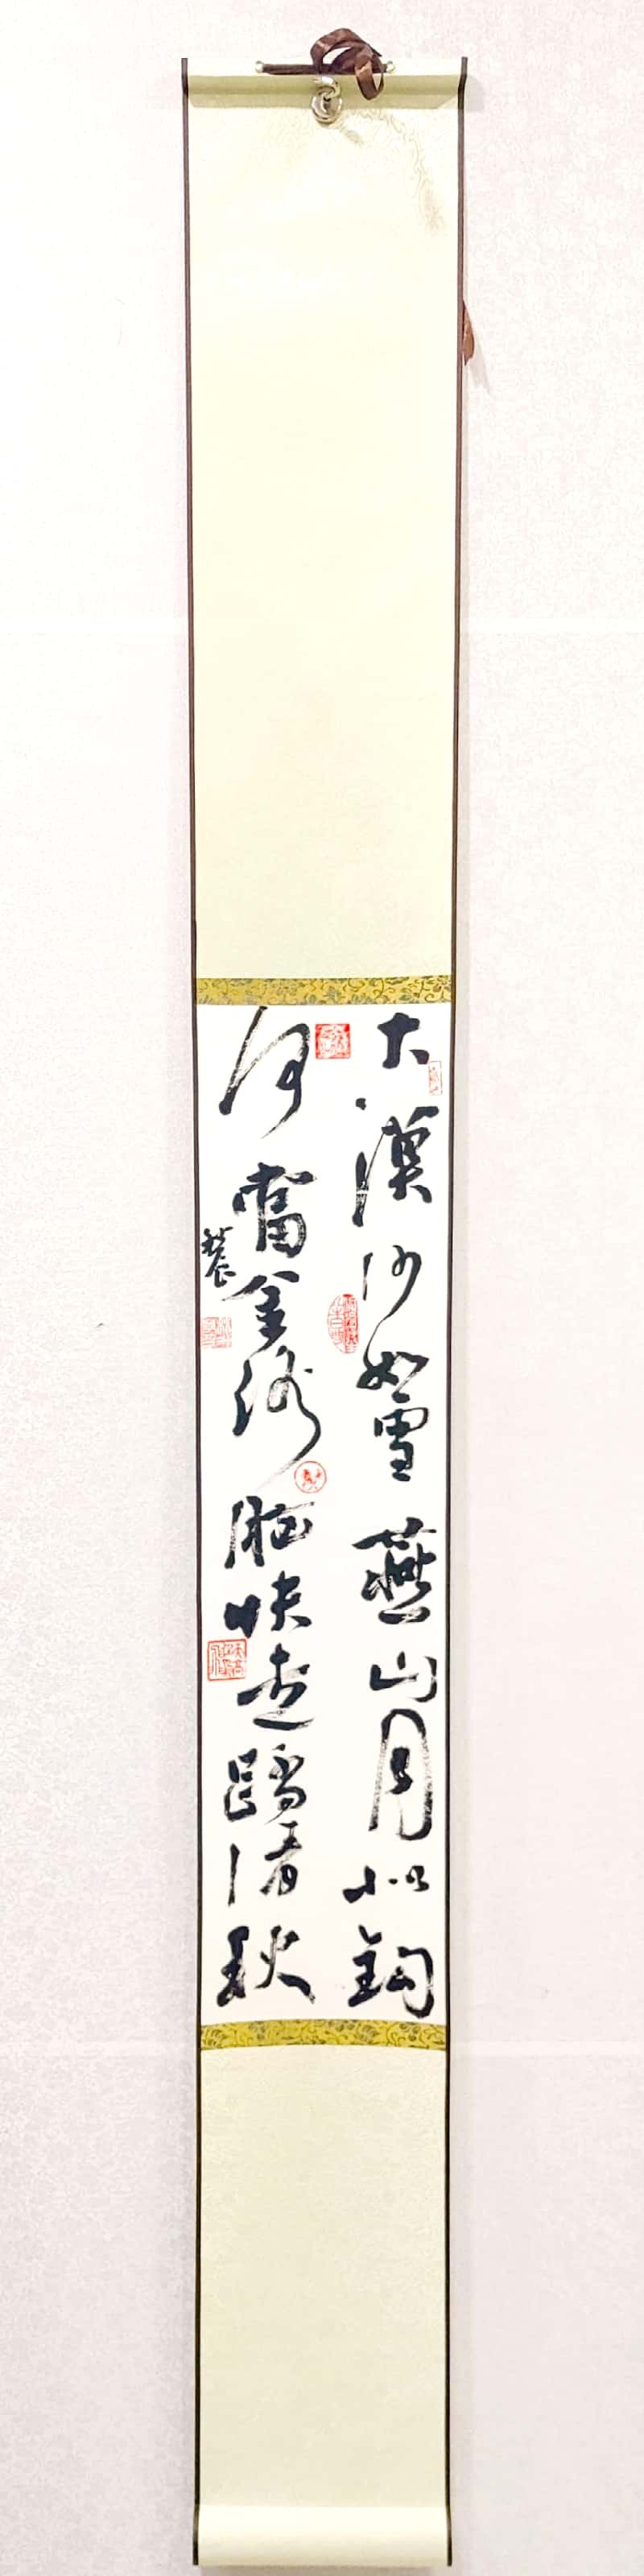 大漠沙如雪燕山月似鈎
何當金络腦快走踏清秋